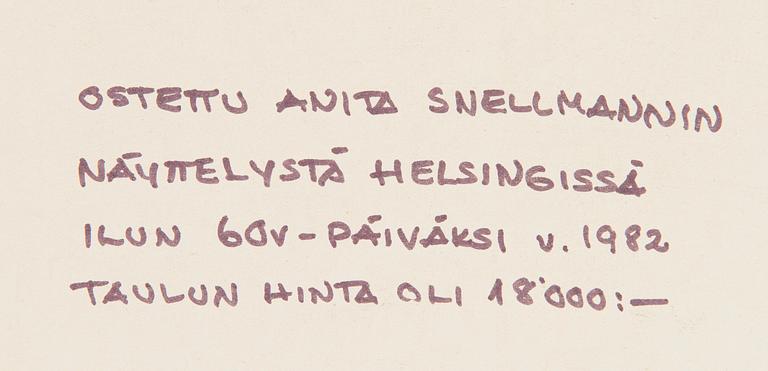 OSTETTU ANITA SNELLMANNIN
NÄYTTELYSTÄ HELSINGISSÄ
ILUN 60V-PÄIVÄKSI v. 1982
TAULUN HINTA OLI 18'000:—